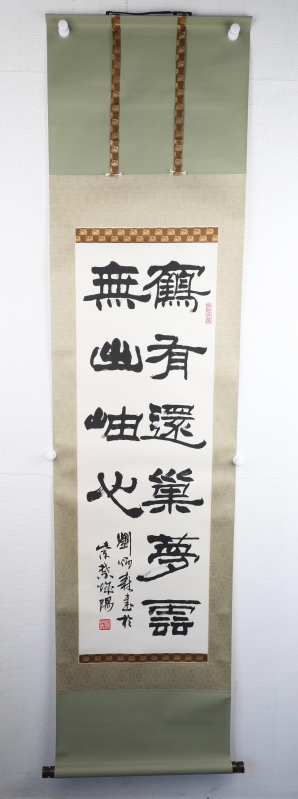 鶴有還巢夢雲
無出岫心
劉炳森書於
京華燦陽